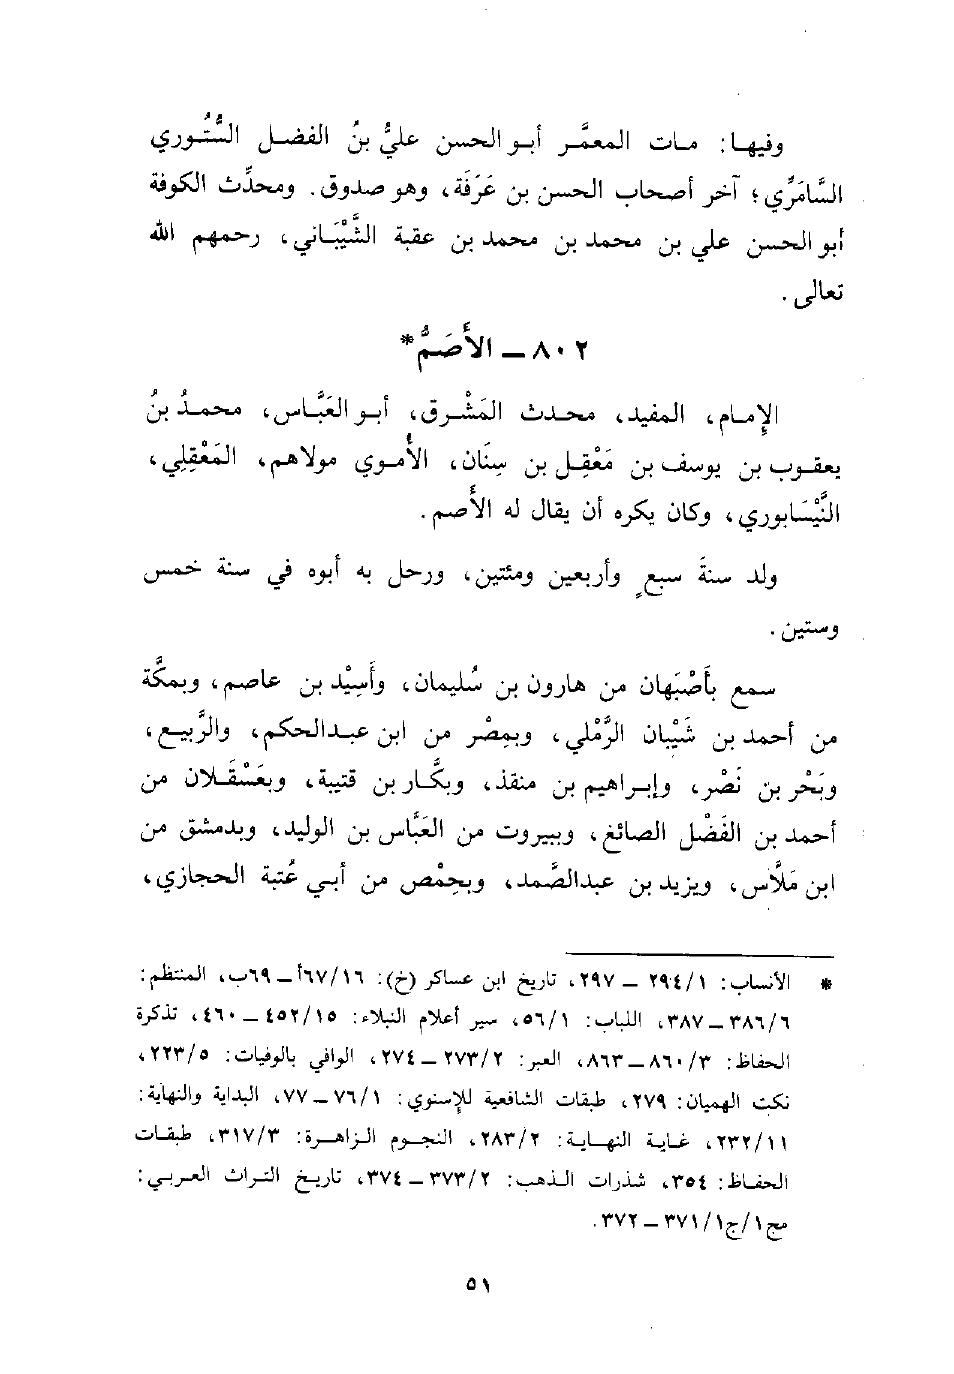 وفيها: مات المعمَّر أبو الحسن عليُّ بنُ الفضل السُّتُوري
السَّامَرِّي؛ آخر أصحاب الحسن بن عَرَفَة، وهو صدوق. ومحدِّث الكوفة
أبو الحسن علي بن محمد بن محمد بن عقبة الشَّيْبَاني، رحمهم الله
تعالى.
٨٠٢ – الأَصَمُّ*
الإِمام، المفيد، محدث المَشْرق، أبو العَبَّاس، محمدُ بنُ
يعقوب بن يوسف بن مَعْقِل بن سِنَان، الأُموي مولاهم، المَعْقِلي،
النَّيْسَابوري، وكان يكره أن يقال له الأَصم.
ولد سنةَ سبعٍ وأربعين ومئتين، ورحل به أبوه في سنة خمس
وستين.
سمع بأَصْبَهان من هارون بن سُليمان، وأَسِيْد بن عاصم، وبمكَّة
من أحمد بن شَيْبان الرَّمْلي، وبمِصْر من ابن عبدالحكم، والرَّبيع،
وبَحْر بن نَصْر، وإبراهيم بن منقذ، وبكَّار بن قتيبة، وبعَسْقَلان من
أحمد بن الفَضْل الصائغ، وببيروت من العَبَّاس بن الوليد، وبدمشق من
ابن مَلَّاس، ويزيد بن عبدالصَّمد، وبحِمْص من أبي عُتبة الحجازي،
* الأنساب: ٢٩٤/١ – ٢٩٧، تاريخ ابن عساكر (خ): ٦٧/١٦أ – ٦٩ب، المنتظم:
٣٨٦/٦ – ٣٨٧، اللباب: ٥٦/١، سير أعلام النبلاء: ٤٥٢/١٥ – ٤٦٠، تذكرة
الحفاظ: ٨٦٠/٣ – ٨٦٣، العبر: ٢٧٣/٢ – ٢٧٤، الوافي بالوفيات: ٢٢٣/٥،
نكت الهميان: ٢٧٩، طبقات الشافعية للإسنوي: ٧٦/١ – ٧٧، البداية والنهاية:
٢٣٢/١١، غاية النهاية: ٢٨٣/٢، النجوم الزاهرة: ٣١٧/٣، طبقات
الحفاظ: ٣٥٤، شذرات الذهب: ٣٧٣/٢ – ٣٧٤، تاريخ التراث العربي:
مج١/ج١/ ٣٧١ – ٣٧٢.
٥١